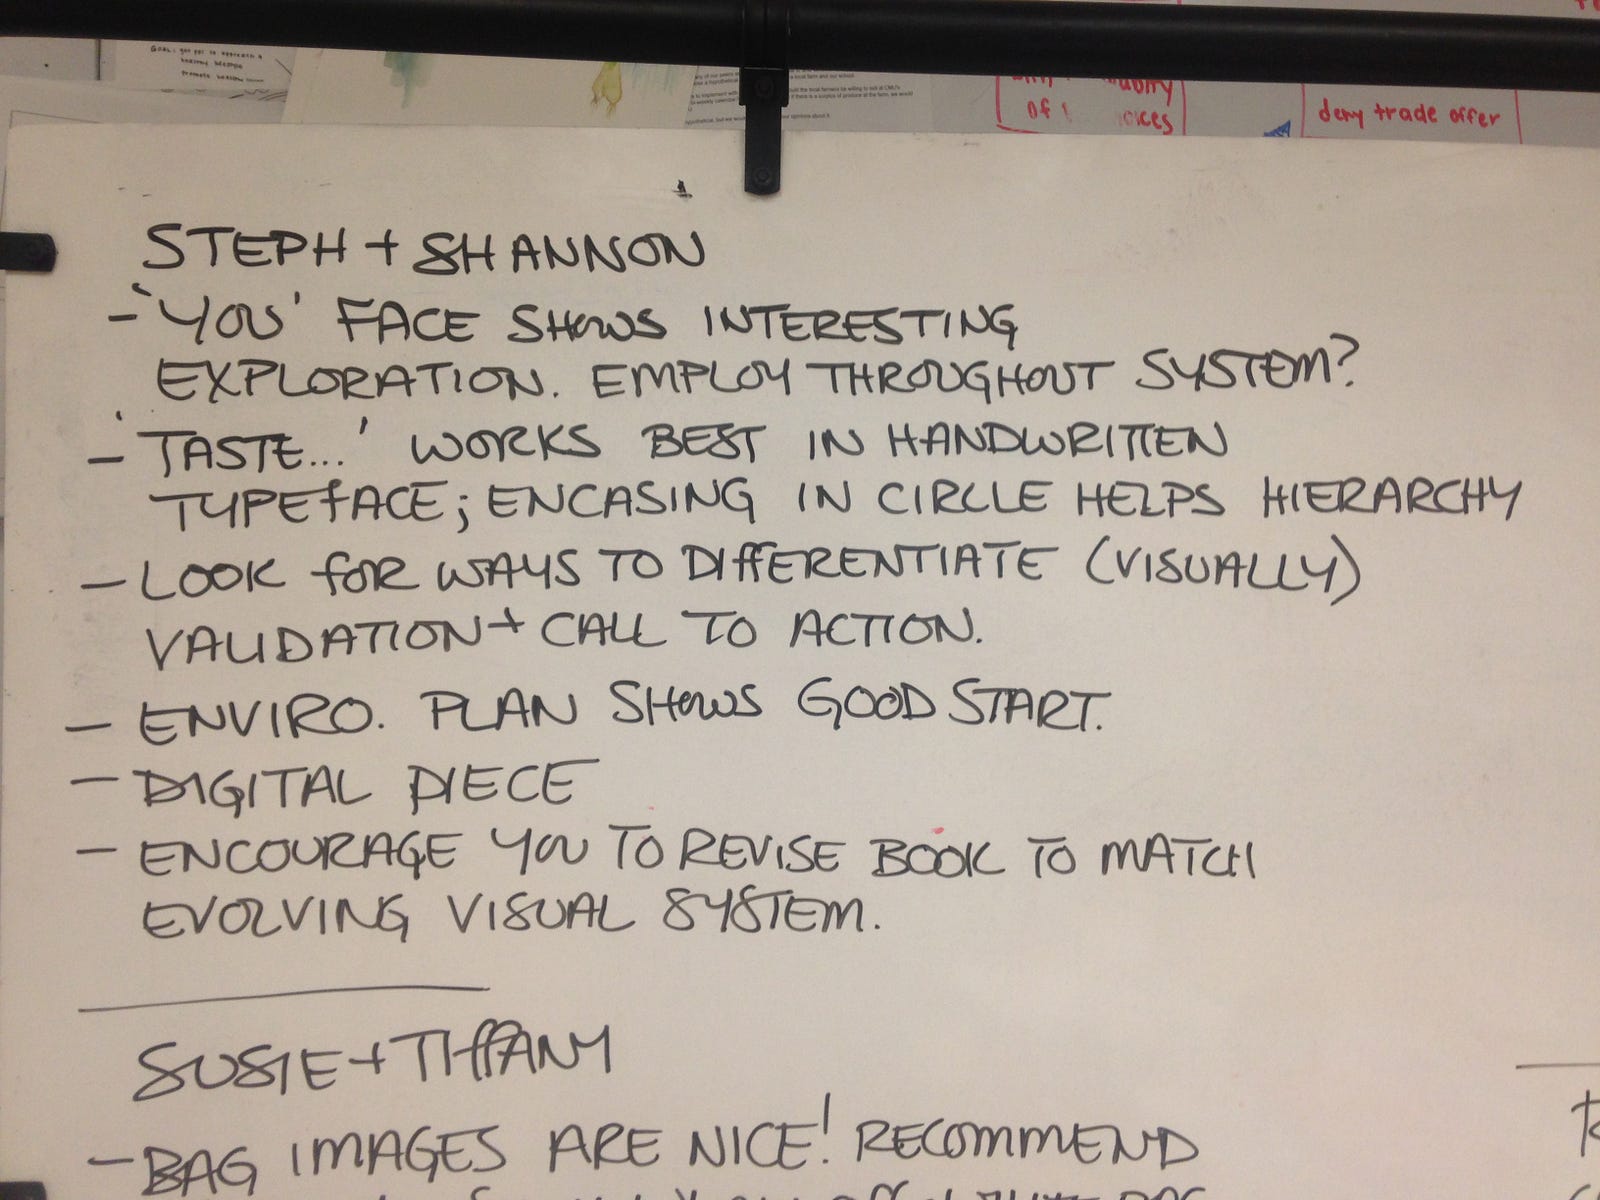 GOAL:
deny trade offer
STEPH + SHANNON
- 'YOU' FACE SHOWS INTERESTING
EXPLORATION. EMPLOY THROUGHOUT SYSTEM?
- 'TASTE...' WORKS BEST IN HANDWRITTEN
TYPEFACE; ENCASING IN CIRCLE HELPS HIERARCHY
- LOOK FOR WAYS TO DIFFERENTIATE (VISUALLY)
VALIDATION + CALL TO ACTION.
- ENVIRO. PLAN SHOWS GOOD START.
- DIGITAL PIECE
- ENCOURAGE YOU TO REVISE BOOK TO MATCH
EVOLVING VISUAL SYSTEM.
SUSIE + TIFFANY
- BAG IMAGES ARE NICE! RECOMMEND